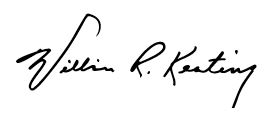 William R. Keating